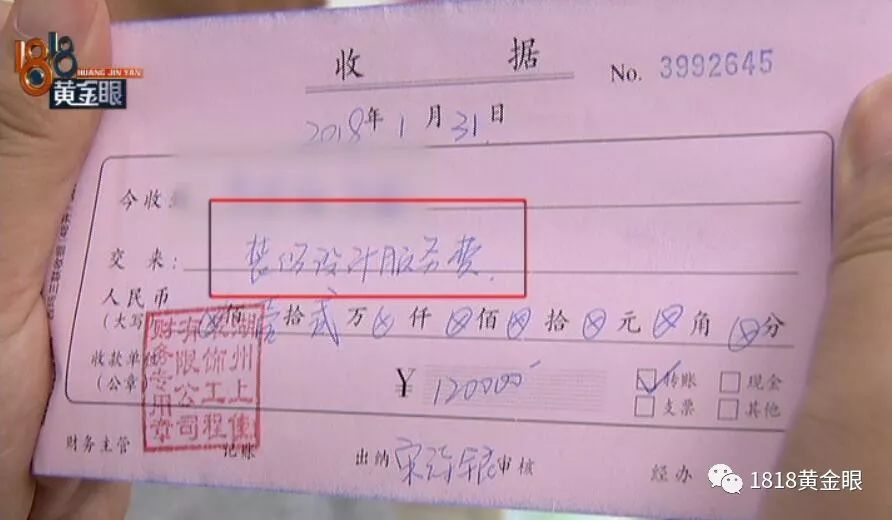 1818
HUANG JIN YAN
黄金眼
收 据
No. 3992645
2018年1月31日
今收到
交来:整伤设计服务费
人民币
(大写) ⊗佰壹拾贰万⊗仟⊗佰⊗拾⊗元⊗角⊗分
收款单位
(公章)
¥ 120000
转账 现金
支票 其他
财务主管 记账 出纳 审核 经办
财务专用章
有限公司
饰工程
湖州上佳
1818黄金眼